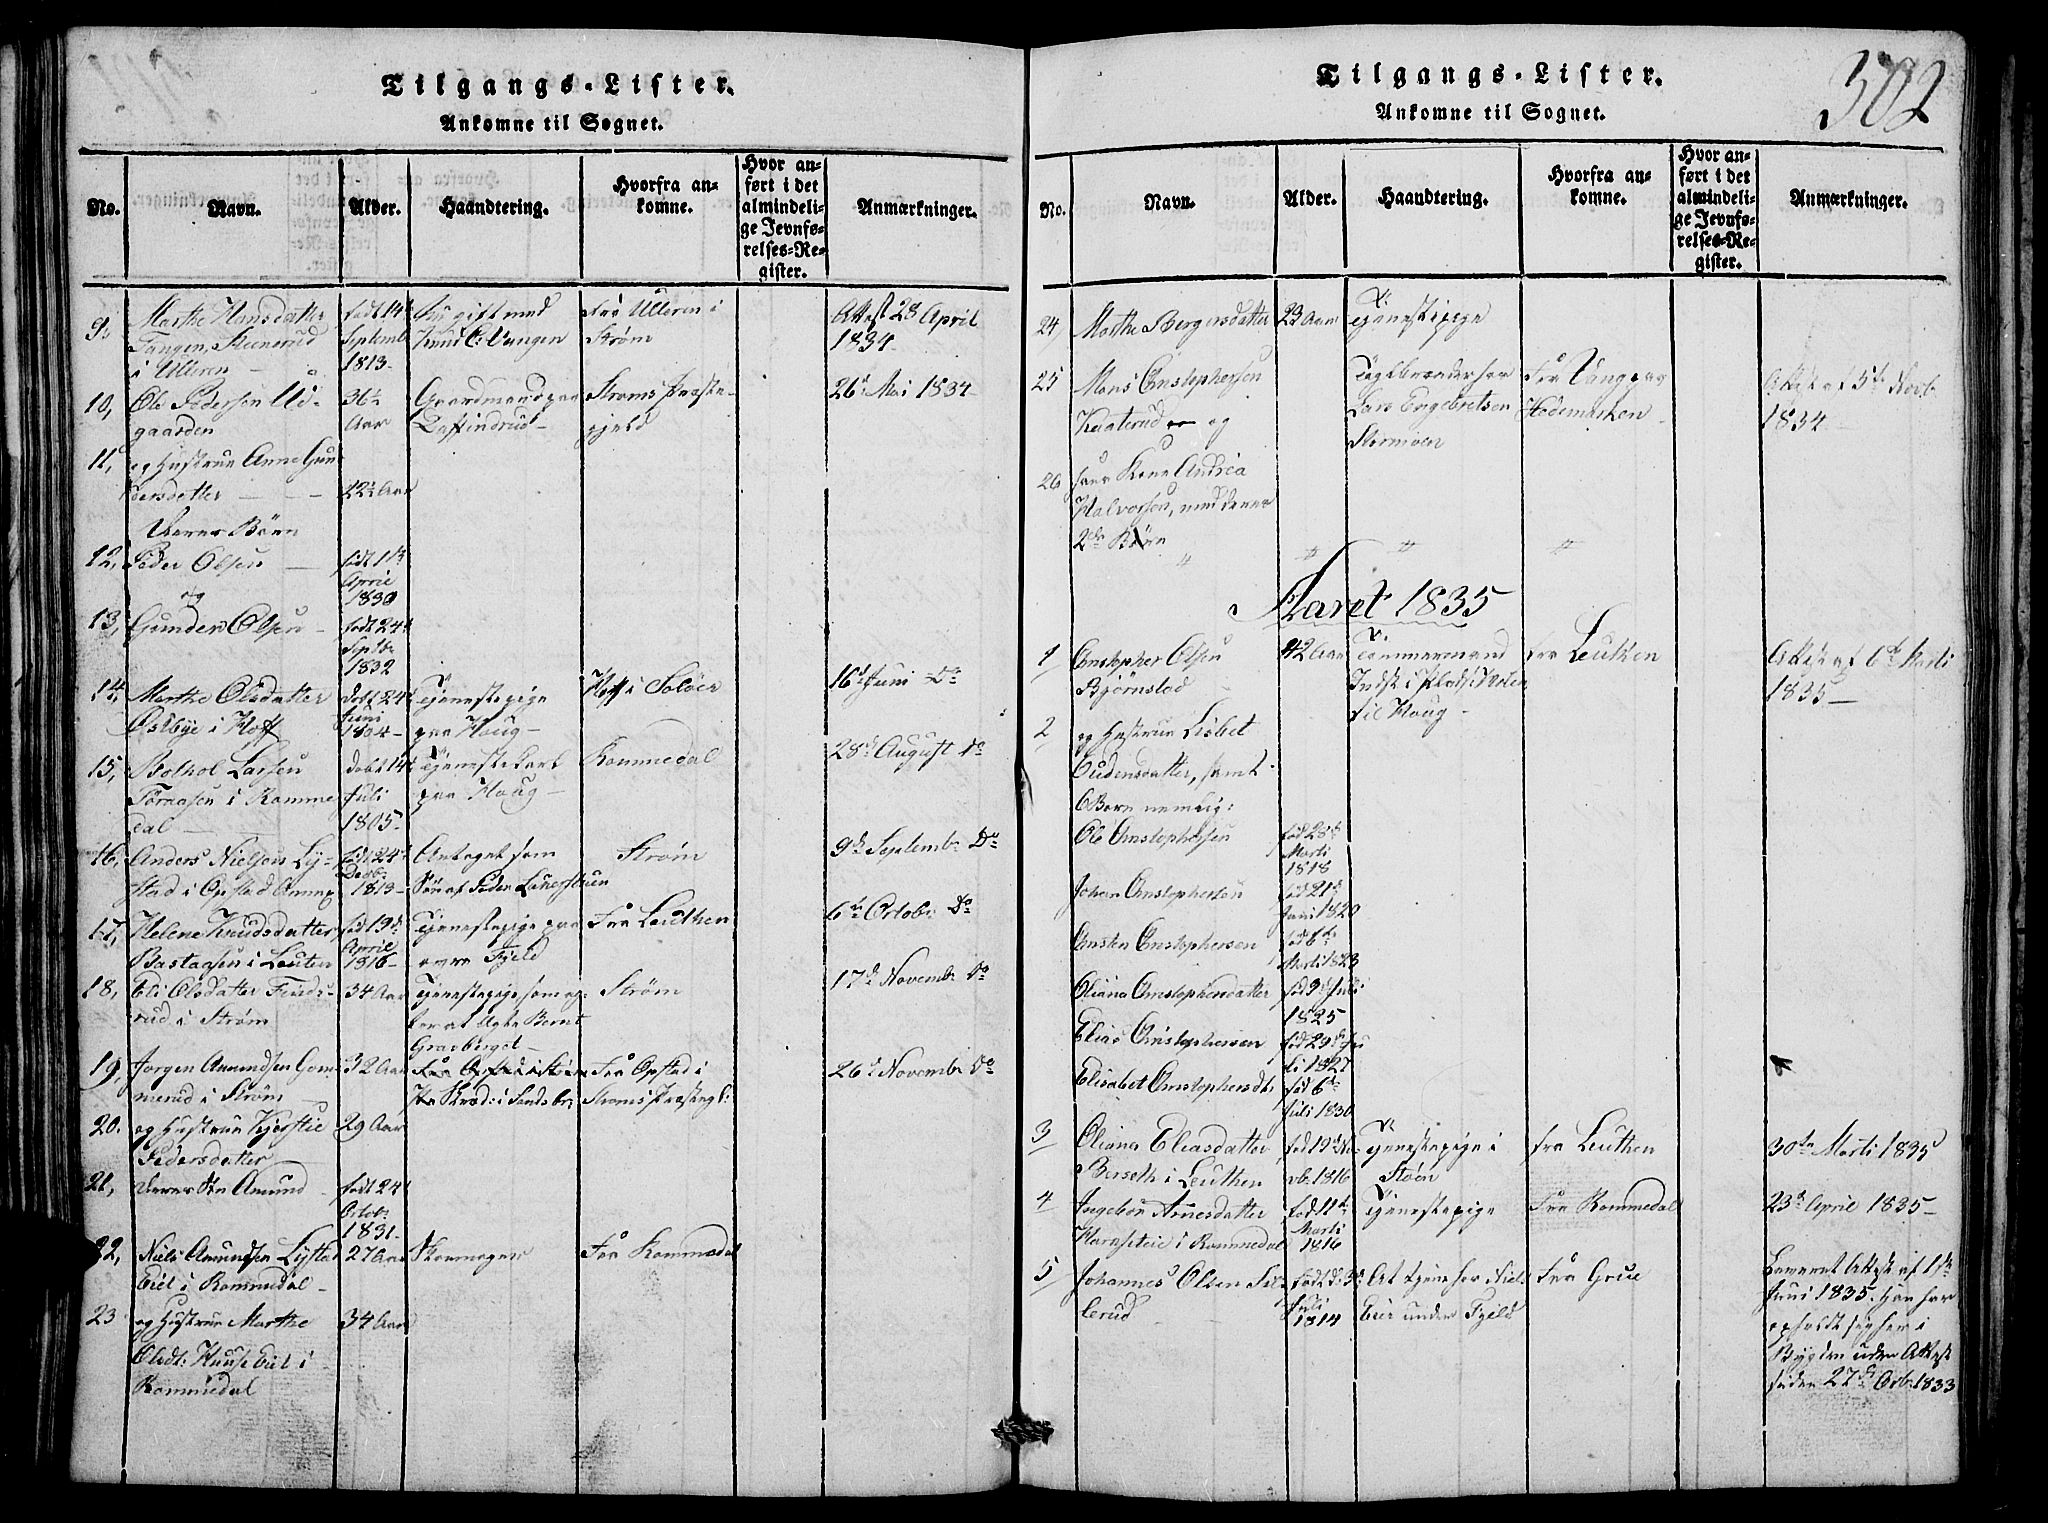 Tilgangs-Lister.
Ankomne til Sognet.
No.
Navn.
Alder.
Haandtering.
Hvorfra an-
komne.
Hvor an-
ført i det
almindeli-
ge Jevnfø-
relses-Re-
gister.
Anmærkninger.
9,
Marthe Hansdatter
Tangen, Steenerud
i Ulleren
født 14
Septemb
1813-
gift med
Knud
Fra Ulleren i
Strøm
Attest 28 April
1834-
10,
Ole Pedersen
gaarden
36½
Aar
Gaardmand paa
Strøms Præste-
gjeld
26d Mai 1834-
11,
og Hustrue Anne Gun
dersdatter
Aar
Deres Börn
12,
Peder Olsen
og
født 1
April
1830
13,
Gunder Olsen
født 24
Septbr
1832
14,
Marthe Olsdatter
Østbye i Hoff
Døbt 24
Juni
1804-
Tjenestepige
paa Haug-
Hoff i Soløer
16d Juni Do
15,
Bothol Larsen
i Romme
dal
døbt 14
Juli
1805-
Tjenestekarl
paa Haug-
Rommedal
28d August Do
16,
Anders Nielsen Ly-
stad i Opstad Annex
født 24
Decbr
1813-
Antaget som
Søn af Peder
Strøm
9d Septembr Do
17,
Helene Knudsdatter
Bastaasen i Leuten
fød 19d
April
1816-
Tjenestepige paa
Fjeld
Fra Leuthen
6te Octobr Do
18,
Eli Olsdatter Finds-
rud i Strøm
34 Aar
Tjenestepige, som ag-
ter at ægte Bernt
Graberget-
Strøm
17d Novembr Do
19,
Jørgen Amundsen Gom-
merud i Strøm
32 Aar
Fra Opstad i
Strøms Præstegl:
26d Novembr Do
20.
og Hustrue Kjerstie
Pedersdatter
29 Aar
21,
deres Søn Amund
født 24
Octob:
1831-
22,
Niels Amundsen Lystad
Eiet i Rommedal-
27 Aar
Skoemager
Fra Rommedal
23
og Hustrue Marthe
Olsdt: Huuse Eiet i
Rommedal
34 Aar
302
Tilgangs-Lister.
Ankomne til Sognet.
No.
Navn.
Alder.
Haandtering.
Hvorfra an-
komne.
Hvor an-
ført i det
almindeli-
ge Jevnfø-
relses-Re-
gister.
Anmærkninger.
24,
Marthe Bergersdatter
23 Aar
Tjenestepige
25
Mons Christophersen
Kaaterud og
Teglbrænder hos
Lars Engebretsen
Stormoen
Fra Vang paa
Hedemarken
Attest af 5te Novb
1834
26
hans Kone Andrea
Halvorsen, med deres
2de Børn
Aaret 1835
1
Christopher Olsen
Bjørnstad
42 Aar
Tømmermand
Indst: i Pladsen Volen
til Haug-
fra Leuthen
Attest af 6te Marti
1835-
2
og Hustrue Lisbet
Oudensdatter, samt
6 Børn nemlig:
Ole Christophersen
fød 28d
Marti
1818
Johan Christophersen
fød 21d
Juni 1820
Christen Christophersen
fød 6te
Marti 1823
Oliana Christophersdatter
fød 9d Juli
1825
Elias Christophersen
fød 29d Ju
li 1827
Elisabet Christophersdt:
fød 6te
Juli 1830
3
Oliana Eliasdatter
Berseth i Leuthen
fød 19d No-
vb: 1816
Tjenestepige i
Strøm
fra Leuthen
30te Marti 1835
4
Ingebor Arnesdatter
i Rommedal
fød 11te
Marti
1816
Tjenestepige
Fra Rommedal
23d April 1835-
5
Johannes Olsen Sil-
lerud
født d: 3d
Juli
1814
At tjene hos Niels
Eier under Fjeld
Fra Grue
Leveret Attest af 1ste
Juni 1835. Han har
opholdt sig her i
Bygden uden Attest
siden 27d Octb. 1833